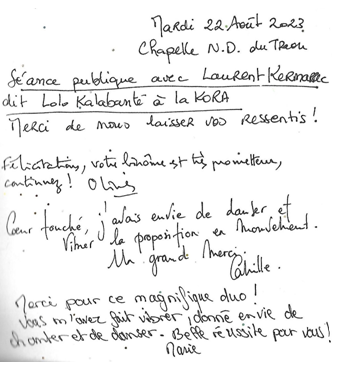 Mardi 22 Août 2023
Chapelle N.D. du Traou
Séance publique avec Laurent Kermarec
dit Lolo Kalabanté à la KORA
Merci de nous laisser vos ressentis !
Félicitations, votre binôme est très prometteur,
continuez !
Cœur touché, j'avais envie de danser et
vibrer la proposition en mouvement.
Un grand Merci.
Cahille.
Merci pour ce magnifique duo !
Vous m'avez fait vibrer, donné envie de
chanter et de danser. Belle réussite pour vous !
Marie